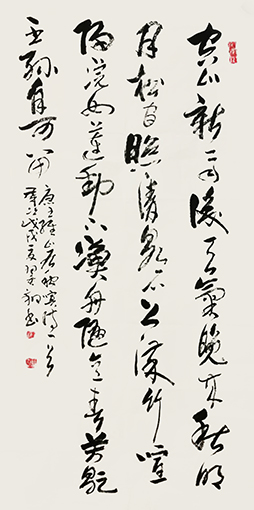 空山新雨後天氣晚來秋明
月松間照清泉石上流竹喧
歸浣女蓮動下漁舟隨意春芳歇
王孫自可留
唐王維山居秋暝詩一首
戊戌夏 書